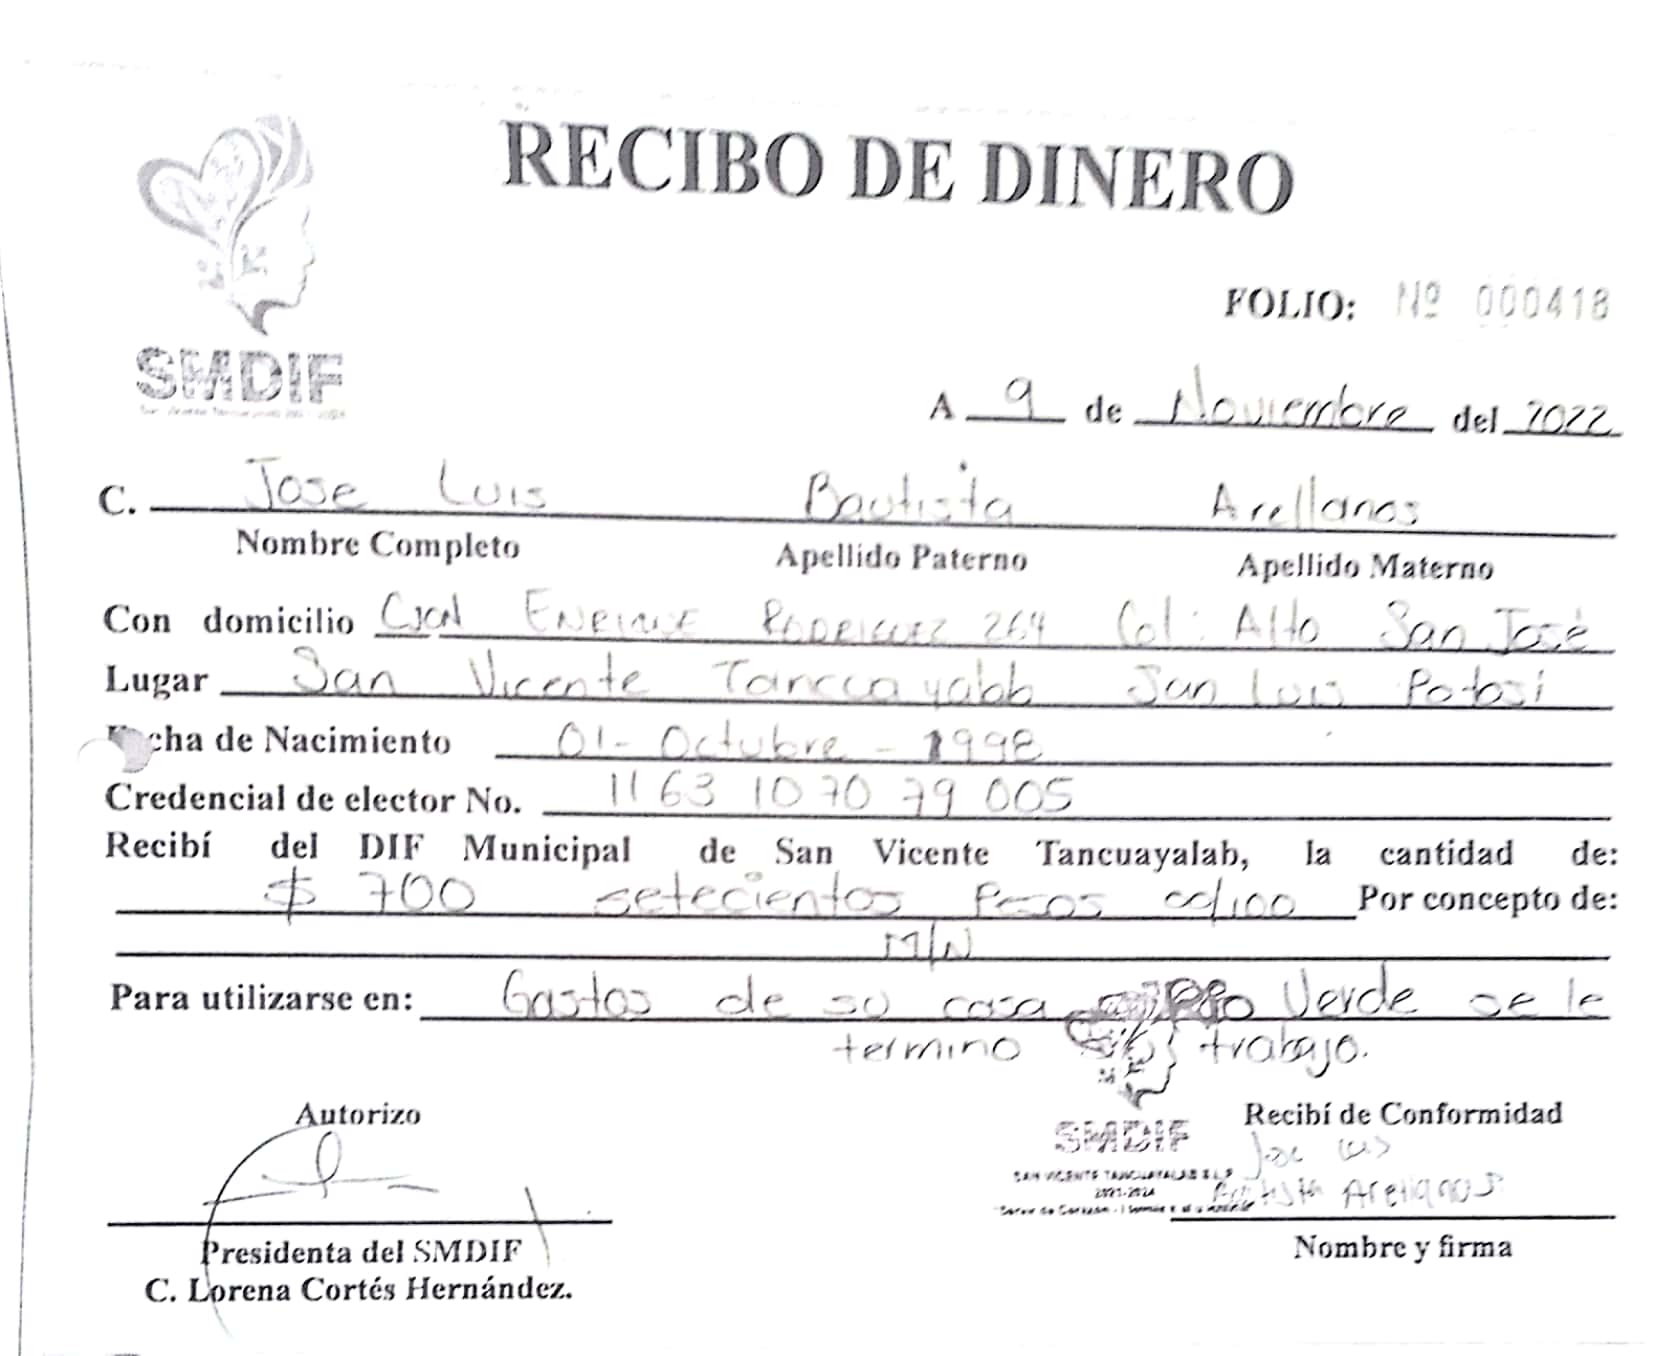 RECIBO DE DINERO
FOLIO: Nº 000418
SMDIF
A 9 de Noviembre del 2022
C. Jose Luis Bautista Arellanos
Nombre Completo Apellido Paterno Apellido Materno
Con domicilio Cjon Enrique Rodriguez 264 Col: Alto San José
Lugar San Vicente Tancuayalab San Luis Potosi
Fecha de Nacimiento 01- Octubre - 1998
Credencial de elector No. 1163 10 70 79 005
Recibí del DIF Municipal de San Vicente Tancuayalab, la cantidad de:
$ 700 setecientos Pesos 00/100 Por concepto de:
M/N
Para utilizarse en: Gastos de su casa Verde se le
termino trabajo.
Autorizo
Recibí de Conformidad
SMDIF
Jose Luis
SAN VICENTE TANCUAYALAB S.L.P
2021-2024
Bautista Arellanos
Nombre y firma
Presidenta del SMDIF
C. Lorena Cortés Hernández.